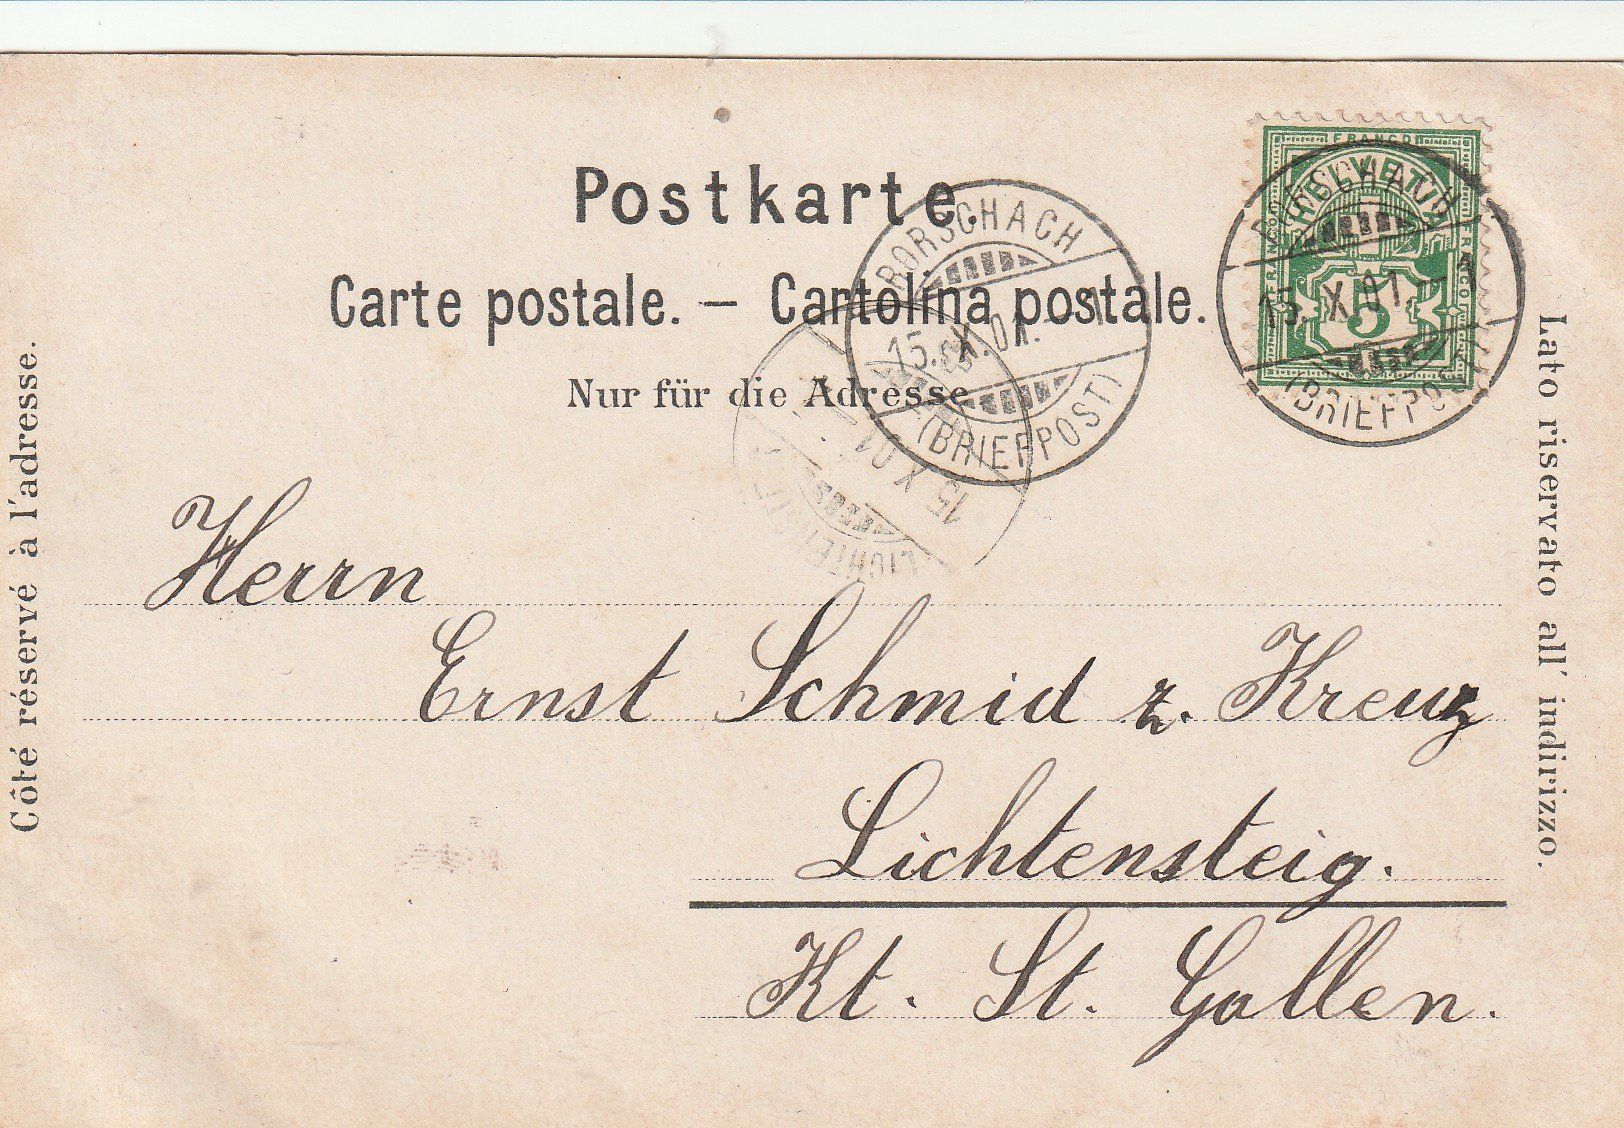 Postkarte.
Carte postale. — Cartolina postale.
Nur für die Adresse
Côté réservé à l'adresse.
Lato riservato all' indirizzo.
FRANCO
HELVETIA
FRANCO
FRANCO
5
RORSCHACH
15. X. 01. – 1
(BRIEFPOST)
RORSCHACH
15. X. 01. – 1
(BRIEFPOST)
15 X 01
Herrn
Ernst Schmid z. Kreuz
Lichtensteig.
Kt. St. Gallen.